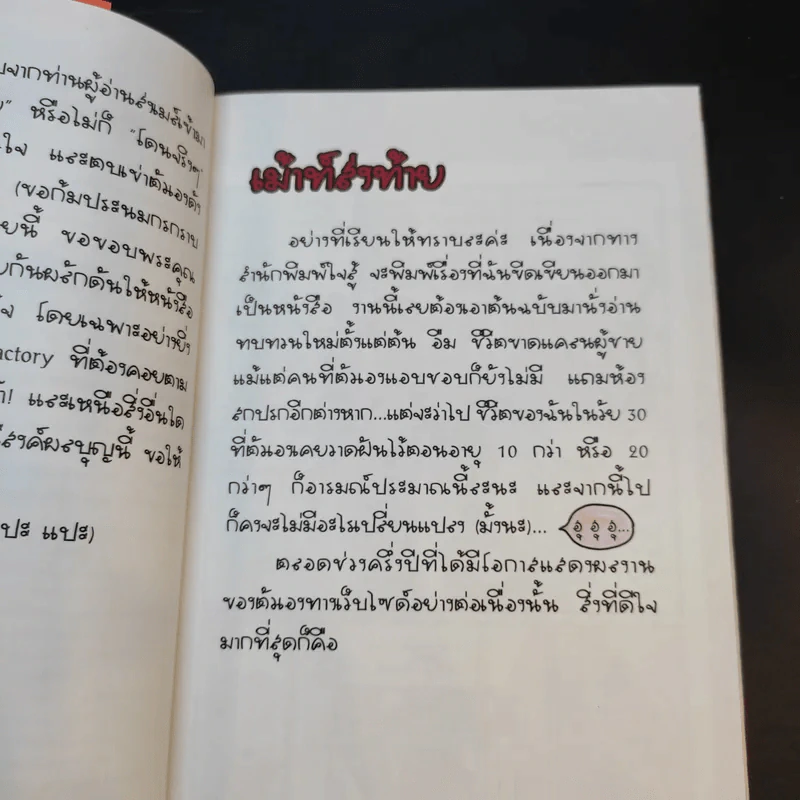 จากท่านผู้อ่านส่งเมล์เข้ามา
หรือไม่ก็ "โดนจริงๆ"
และตบเข่าตัวเองดัง
(ขอก้มประนมกรกราบ
ขอขอบพระคุณ
กันผลักดันให้หนังสือ
โดยเฉพาะอย่างยิ่ง
actory ที่ต้องคอยตาม
และเหนือสิ่งอื่นใด
ผลบุญนี้ ขอให้
แปะ)
เม้าท์ส่งท้าย
อย่างที่เรียนให้ทราบละค่ะ เนื่องจากทาง
สำนักพิมพ์ใจสู้ จะพิมพ์เรื่องที่ฉันขีดเขียนออกมา
เป็นหนังสือ งานนี้เลยต้องเอาต้นฉบับมานั่งอ่าน
ทบทวนใหม่ตั้งแต่ต้น อืม ชีวิตขาดแคลนผู้ชาย
แม้แต่คนที่ตัวเองแอบชอบก็ยังไม่มี แถมห้อง
สกปรกอีกต่างหาก...แต่จะว่าไป ชีวิตของฉันในวัย 30
ที่ตัวเองเคยวาดฝันไว้ตอนอายุ 10 กว่า หรือ 20
กว่าๆ ก็อารมณ์ประมาณนี้ละนะ และจากนี้ไป
ก็คงจะไม่มีอะไรเปลี่ยนแปลง (มั้งนะ)... อุ อุ อุ...
ตลอดช่วงครึ่งปีที่ได้มีโอกาสแสดงผลงาน
ของตัวเองทางเว็บไซต์อย่างต่อเนื่องนั้น สิ่งที่ดีใจ
มากที่สุดก็คือ